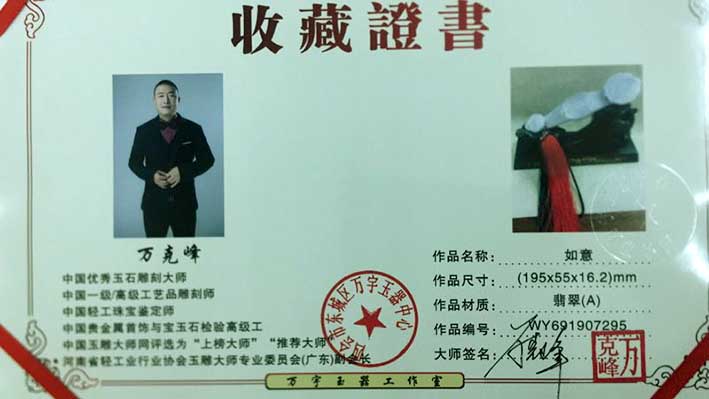 收藏證書
万克峰
中国优秀玉石雕刻大师
中国一级/高级工艺品雕刻师
中国轻工珠宝鉴定师
中国贵金属首饰与宝玉石检验高级工
中国玉雕大师网评选为“上榜大师”“推荐大师”
河南省轻工业行业协会玉雕大师专业委员会(广东)副会长
四会市东城区万字玉器中心
作品名称: 如意
作品尺寸: (195x55x16.2)mm
作品材质: 翡翠(A)
作品编号: WY691907295
大师签名:
万克峰
万字玉器工作室